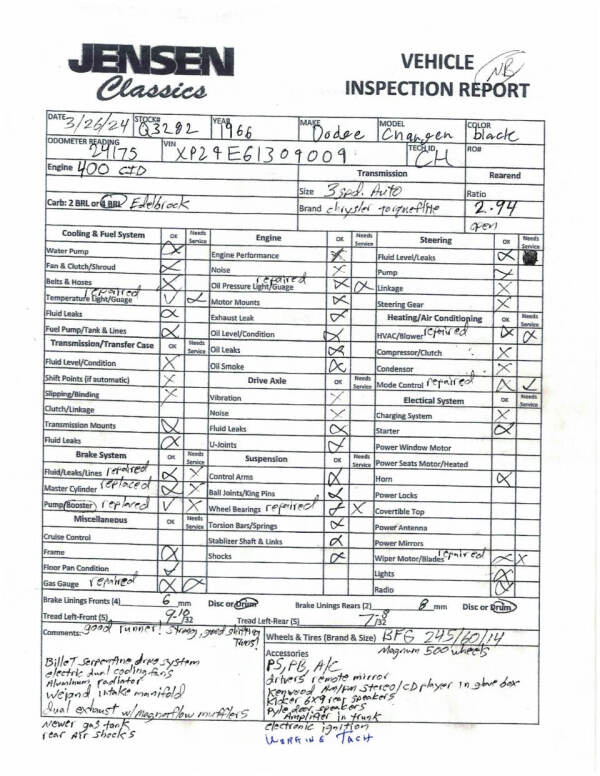 JENSEN
Classics
VEHICLE
INSPECTION REPORT
NB
DATE 3/26/24 STOCK# Q3282 YEAR 1966 MAKE Dodge MODEL Charger COLOR black
ODOMETER READING 24175 VIN XP29E61309009 TECH ID CH RO#
Engine 400 CID Transmission Rearend
Size 3 spd. Auto Ratio
Carb: 2 BRL or 4 BRL Edelbrock Brand chrysler torqueflite 2.94
open
Cooling & Fuel System OK Needs Service Engine OK Needs Service Steering OK Needs Service
Water Pump Engine Performance Fluid Level/Leaks
Fan & Clutch/Shroud Noise Pump
Belts & Hoses Oil Pressure Light/Guage repaired Linkage
Temperature Light/Guage repaired Motor Mounts Steering Gear
Fluid Leaks Exhaust Leak Heating/Air Conditioning OK Needs Service
Fuel Pump/Tank & Lines Oil Level/Condition HVAC/Blower repaired
Transmission/Transfer Case OK Needs Service Oil Leaks Compressor/Clutch
Fluid Level/Condition Oil Smoke Condensor
Shift Points (if automatic) Drive Axle OK Needs Service Mode Control repaired
Slipping/Binding Vibration Electical System OK Needs Service
Clutch/Linkage Noise Charging System
Transmission Mounts Fluid Leaks Starter
Fluid Leaks U-Joints Power Window Motor
Brake System OK Needs Service Suspension OK Needs Service Power Seats Motor/Heated
Fluid/Leaks/Lines repaired Control Arms Horn
Master Cylinder replaced Ball Joints/King Pins Power Locks
Pump/Booster replaced Wheel Bearings repaired Covertible Top
Miscellaneous OK Needs Service Torsion Bars/Springs Power Antenna
Cruise Control Stablizer Shaft & Links Power Mirrors
Frame Shocks Wiper Motor/Blades repaired
Floor Pan Condition Lights
Gas Gauge repaired Radio
Brake Linings Fronts (4) 6 mm Disc or Drum Brake Linings Rears (2) 8 mm Disc or Drum
Tread Left-Front (5) 9-10/32 Tread Left-Rear (5) 7-8/32
Comments: good runner! Strong, good shifting Trans! Wheels & Tires (Brand & Size) BFG 245/60/14
Magnum 500 wheels
Accessories
PS, PB, A/C
BilleT serpentine drive system
electric dual cooling fans
Aluminum radiator
Weiand intake manifold
dual exhaust w/Magnaflow mufflers
Newer gas tank
rear Air shocks
drivers remote mirror
Kenwood Am/fm stereo/CD player in glove box
Kicker 6x9 rear speakers
Pyle door speakers
Amplifier in trunk
electronic ignition
WORKING TACH